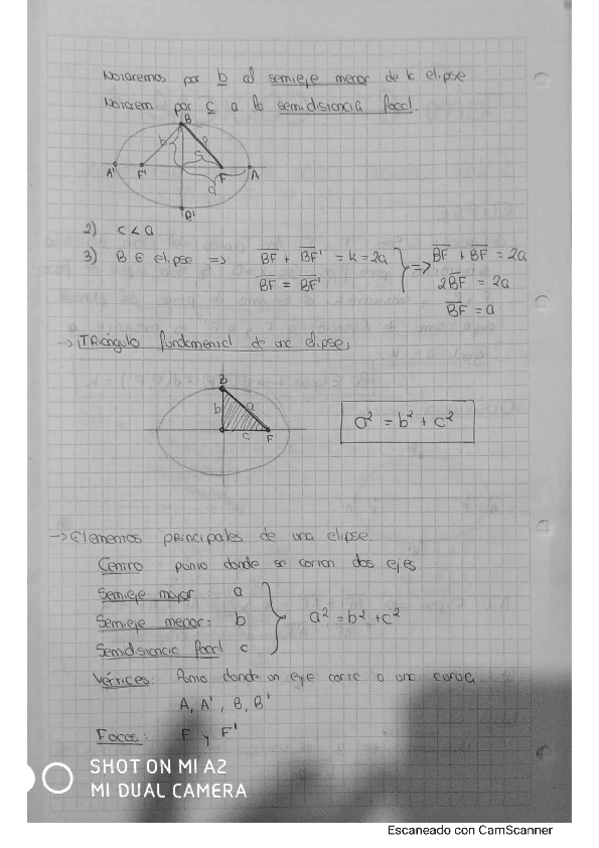 Notaremos por b al semieje menor de la elipse
Notarem por c a la semidistancia focal.
B
b a
c
A' F' F A
a
B'
2) c < a
3) B ∈ elipse => BF + BF' = k = 2a
BF = BF'
=> BF + BF = 2a
2BF = 2a
BF = a
-> Triángulo fundamental de una elipse
B
b a
c F
a² = b² + c²
-> Elementos principales de una elipse.
Centro punto donde se cortan dos ejes
Semieje mayor: a
Semieje menor: b
Semidistancia focal c
a² = b² + c²
Vértices: Punto donde un eje corte a una curva
A, A', B, B'
Focos: F y F'
SHOT ON MI A2
MI DUAL CAMERA
Escaneado con CamScanner